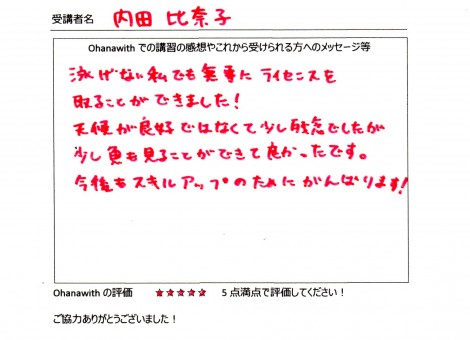 受講者名 内田 比奈子
Ohanawith での講習の感想やこれから受けられる方へのメッセージ等
泳げない私でも無事にライセンスを
取ることができました!
天候が良好ではなくて少し残念でしたが
少し魚も見ることができて良かったです。
今後もスキルアップのためにがんばります!
Ohanawith の評価 ★★★★★ 5 点満点で評価してください!
ご協力ありがとうございました!